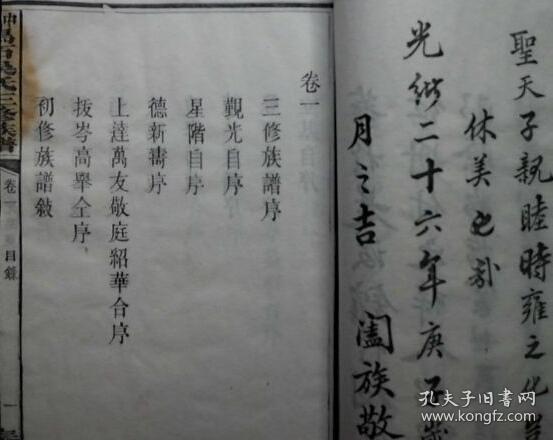 聖天子親睦時雍之化
休美也
光緒二十六年庚子歲
月之吉　闔族敬
卷一
三修族譜序
觀光自序
星階自序
德新壽序
上達萬友敬庭紹華合序
拔岑高舉全序
初修族譜敘
三修族譜
卷一
目錄
一
孔夫子旧书网
www.kongfz.com